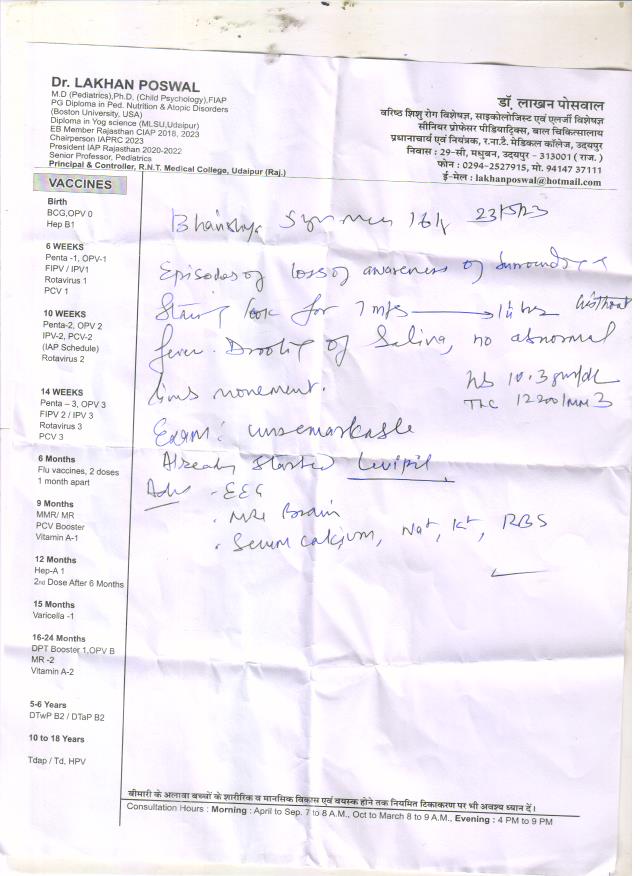 Dr. LAKHAN POSWAL
M.D (Pediatrics),Ph.D. (Child Psychology),FIAP
PG Diploma in Ped. Nutrition & Atopic Disorders
(Boston University, USA)
Diploma in Yog science (MLSU,Udaipur)
EB Member Rajasthan CIAP 2018, 2023
Chairperson IAPRC 2023
President IAP Rajasthan 2020-2022
Senior Professor, Pediatrics
Principal & Controller, R.N.T. Medical College, Udaipur (Raj.)
डॉ. लाखन पोसवाल
वरिष्ठ शिशु रोग विशेषज्ञ, साइकोलोजिस्ट एवं एलर्जी विशेषज्ञ
सीनियर प्रोफेसर पीडियाट्रिक्स, बाल चिकित्सालय
प्रधानाचार्य एवं नियंत्रक, र.ना.टै. मेडिकल कॉलेज, उदयपुर
निवास : 29-सी, मधुबन, उदयपुर - 313001 ( राज. )
फोन : 0294-2527915, मो. 94147 37111
ई-मेल : lakhanposwal@hotmail.com
VACCINES
Birth
BCG,OPV 0
Hep B1
6 WEEKS
Penta -1, OPV-1
FIPV / IPV1
Rotavirus 1
PCV 1
10 WEEKS
Penta-2, OPV 2
IPV-2, PCV-2
(IAP Schedule)
Rotavirus 2
14 WEEKS
Penta – 3, OPV 3
FIPV 2 / IPV 3
Rotavirus 3
PCV 3
6 Months
Flu vaccines, 2 doses
1 month apart
9 Months
MMR/ MR
PCV Booster
Vitamin A-1
12 Months
Hep-A 1
2nd Dose After 6 Months
15 Months
Varicella -1
16-24 Months
DPT Booster 1,OPV B
MR -2
Vitamin A-2
5-6 Years
DTwP B2 / DTaP B2
10 to 18 Years
Tdap / Td, HPV
23/5/23
Episodes of loss of awareness of surround
Staring look for 1 hrs without
fever. Drooling of Saliva, no abnormal
limb movement.
Hb 10.3 gm/dL
TLC 12200/mm3
Exam: unremarkable
Already started Levipil
Adv - EEG
. MRI Brain
. Serum calcium, Na+, K+, RBS
बीमारी के अलावा बच्चों के शारीरिक व मानसिक विकास एवं वयस्क होने तक नियमित टिकाकरण पर भी अवश्य ध्यान दें।
Consultation Hours : Morning : April to Sep. 7 to 8 A.M., Oct to March 8 to 9 A.M., Evening : 4 PM to 9 PM